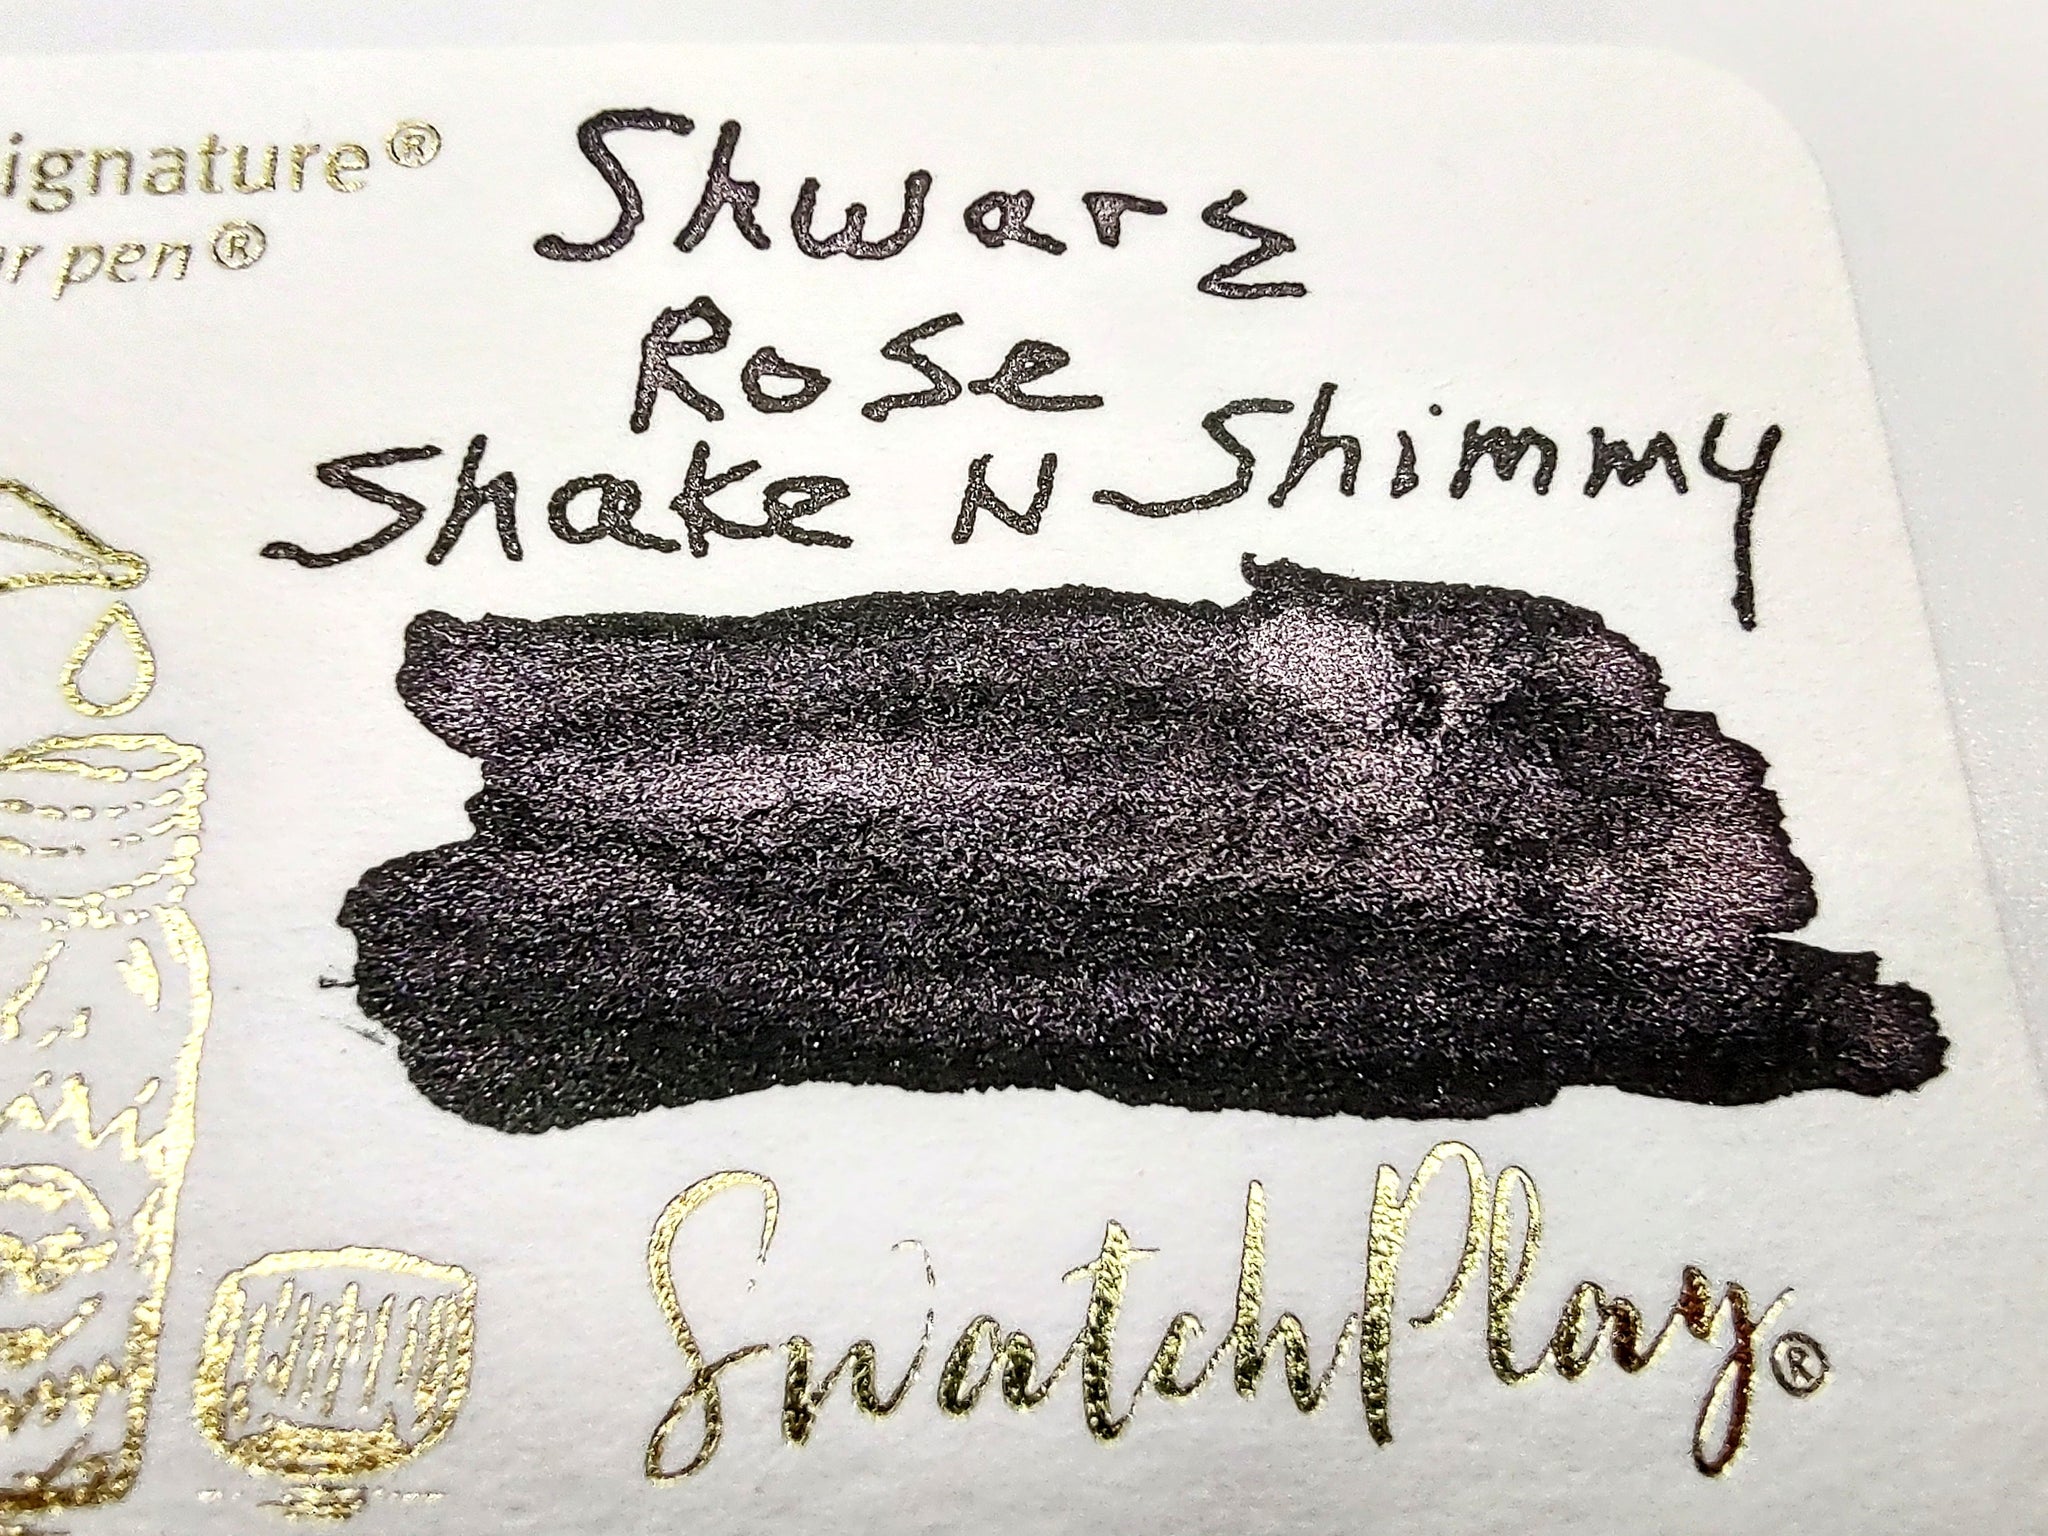 ignature®
ur pen®
Shwarz
Rose
Shake N Shimmy
SwatchPlay®